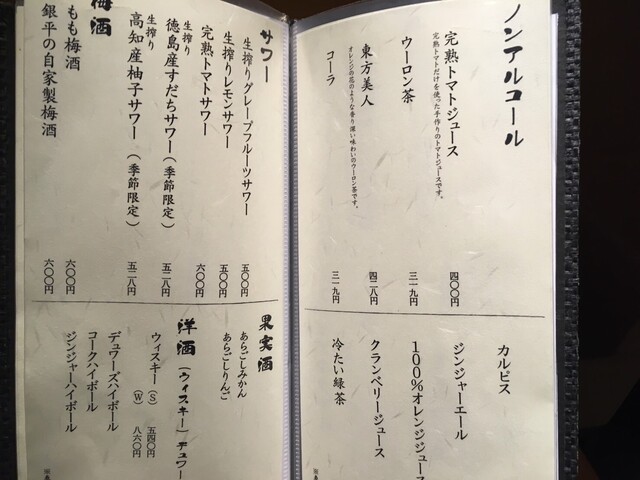 ノンアルコール
完熟トマトジュース 四〇〇円
完熟トマトだけを使った手作りのトマトジュースです。
ウーロン茶 三一九円
東方美人 四二八円
オレンジの花のような香り深い味わいのウーロン茶です。
コーラ 三一九円
カルピス
ジンジャーエール
100%オレンジジュース
クランベリージュース
冷たい緑茶
サワー
生搾りグレープフルーツサワー 五〇〇円
生搾りレモンサワー 五〇〇円
完熟トマトサワー 六〇〇円
生搾り
徳島産すだちサワー(季節限定) 五二八円
生搾り
高知産柚子サワー(季節限定) 五二八円
梅酒
もも梅酒 六〇〇円
銀平の自家製梅酒 六〇〇円
果実酒
あらごしみかん
あらごしりんご
洋酒(ウィスキー)デュワー
ウィスキー(S) 五四〇円
(W) 八六〇円
デュワーズハイボール
コークハイボール
ジンジャーハイボール